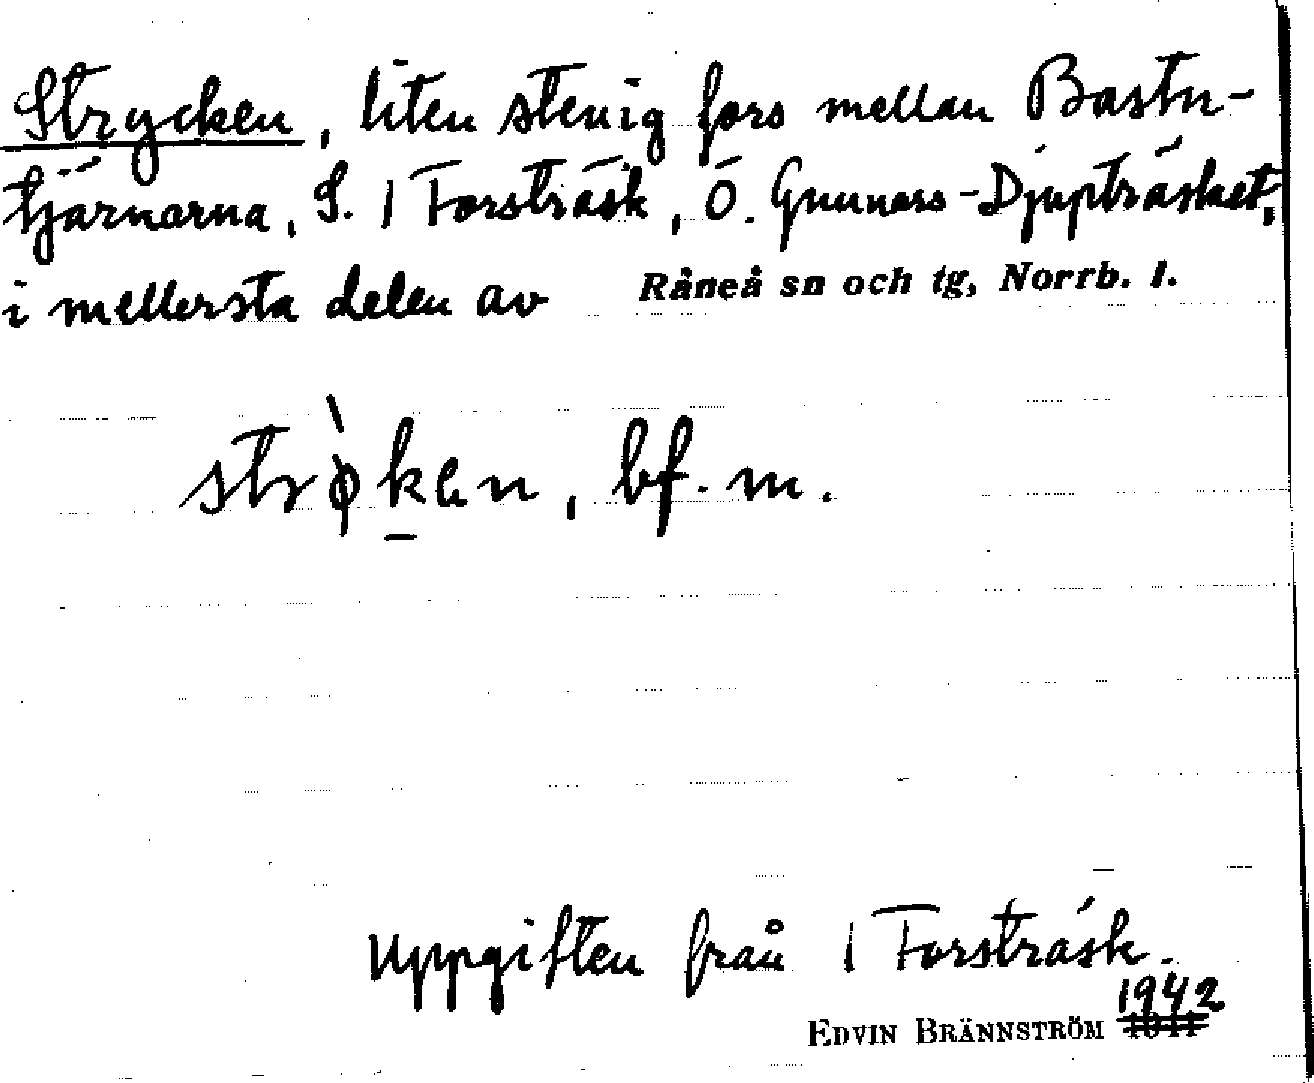 Strycken, liten stenig fors mellan Bastu-
tjärnarna, S. 1 Forsträsk, Ö. Gunnars-Djupträsket,
i mellersta delen av Råneå sn och tg, Norrb. l.
strø̀ḵen, bf. m.
Uppgiften från 1 Forsträsk.
1942
EDVIN BRÄNNSTRÖM 1941